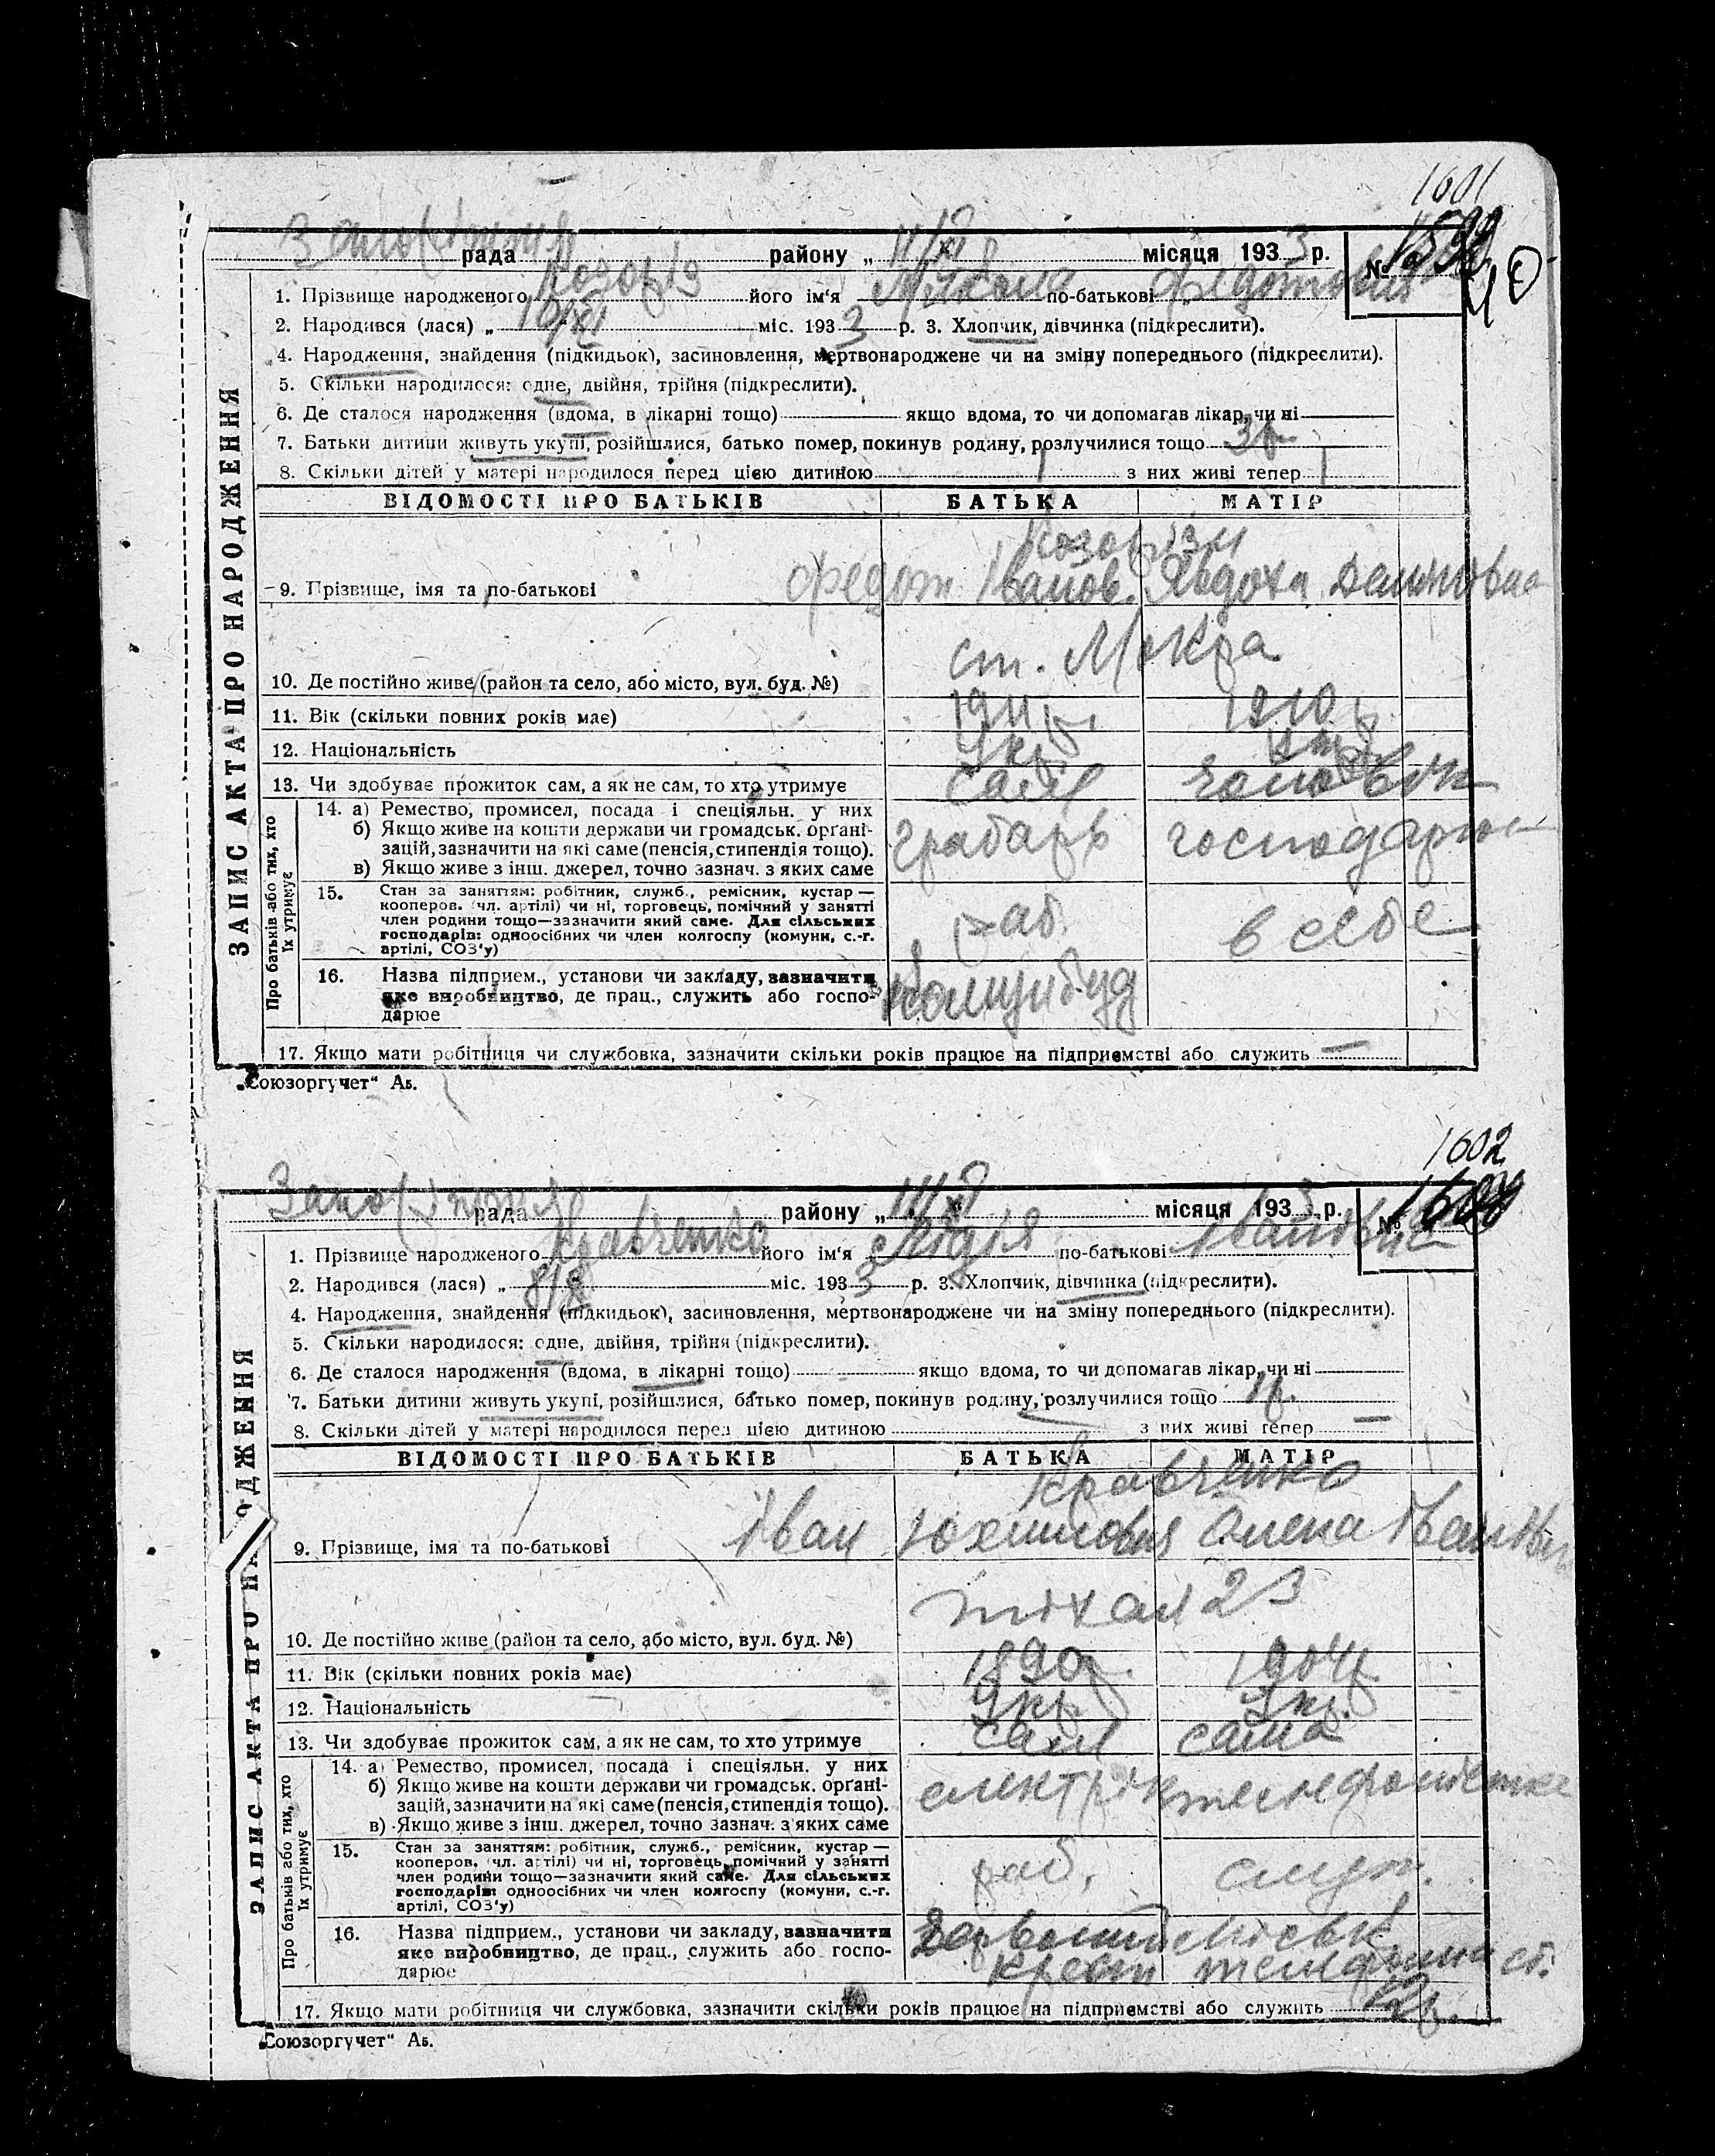 1601
Запоріжжя рада району „ 11/XI місяця 1933 р. №
1. Прізвище народженого його ім‘я Микола по-батькові Федотович
2. Народився (лася) „ 10/XI міс. 1933 р. 3. Хлопчик, дівчинка (підкреслити).
4. Народження, знайдення (підкидьок), засиновлення, мертвонароджене чи на зміну попереднього (підкреєлити).
5. Скільки народилося: одне, двійня, трійня (підкреслити).
6. Де сталося народження (вдома, в лікарні тощо) якщо вдома, то чи допомагав лікар, чи ні
7. Батьки дитини живуть укупі, розійшлися, батько помер, покинув родину, розлучилися тощо 3р.
8. Скільки дітей у матері народилося перед цією дитиною 1 з них живі тепер 1
ВІДОМОСТІ ПРО БАТЬКІВ БАТЬКА МАТІР
9. Прізвище, імя та по-батькові Федот Іванов. Явдоха
10. Де постійно живе (район та село, або місто, вул. буд. №) ст. Мокра
11. Вік (скільки повних років має) 1911 р. 1910 р.
12. Національність Укр. Укр.
13. Чи здобуває прожиток сам, а як не сам, то хто утримує сам чоловік
14. а) Ремество, промисел, посада і спеціяльн. у них
б) Якщо живе на кошти держави чи громадськ. орґані-
зацій, зазначити на які саме (пенсія, стипендія тощо). грабарь господарює
в) Якщо живе з інш. джерел, точно зазнач. з яких саме
15. Стан за заняттям: робітник, служб., ремісник, кустар —
кооперов. (чл. артілі) чи ні, торговець, помічний у занятті
член родини тощо—зазначити який саме. Для сільських
господарів: одноосібних чи член колгоспу (комуни, с.-г.
артілі, СОЗ‘у) раб. в себе
16. Назва підприєм., установи чи закладу, зазначити
яке виробництво, де прац., служить або госпо-
дарює
17. Якщо мати робітниця чи службовка, зазначити скільки років працює на підприємстві або служить —
ЗАПИС АКТА ПРО НАРОДЖЕННЯ
Про батьків або тих, хто
їх утримує
„Союзоргучет“ Аб.
1602
Запоріжжя рада району „ 11/XI місяця 1933 р. №
1. Прізвище народженого Кравченко його ім‘я Лідія по-батькові Іванівна
2. Народився (лася) „ міс. 1933 р. 3. Хлопчик, дівчинка (підкреслити).
4. Народження, знайдення (підкидьок), засиновлення, мертвонароджене чи на зміну попереднього (підкреслити).
5. Скільки народилося: одне, двійня, трійня (підкреслити).
6. Де сталося народження (вдома, в лікарні тощо) якщо вдома, то чи допомагав лікар, чи ні
7. Батьки дитини живуть укупі, розійшлися, батько помер, покинув родину, розлучилися тощо 1р.
8. Скільки дітей у матері народилося перед цією дитиною — з них живі тепер —
ВІДОМОСТІ ПРО БАТЬКІВ БАТЬКА МАТІР
Кравченко
9. Прізвище, імя та по-батькові Іван Юхимович Олена Іванівна
10. Де постійно живе (район та село, або місто, вул. буд. №)
11. Вік (скільки повних років має) 1890р. 1904р.
12. Національність Укр. Укр.
13. Чи здобуває прожиток сам, а як не сам, то хто утримує сам сама
14. а) Ремество, промисел, посада і спеціяльн. у них
б) Якщо живе на кошти держави чи громадськ. орґані-
зацій, зазначити на які саме (пенсія, стипендія тощо). електрік телефонистка
в) Якщо живе з інш. джерел, точно зазнач. з яких саме
15. Стан за заняттям: робітник, служб., ремісник, кустар —
кооперов. (чл. артілі) чи ні, торговець, помічний у занятті
член родини тощо—зазначити який саме. Для сільських
господарів: одноосібних чи член колгоспу (комуни, с.-г.
артілі, СОЗ‘у) раб. служ.
16. Назва підприєм., установи чи закладу, зазначити
яке виробництво, де прац., служить або госпо-
дарює телефонна ст.
17. Якщо мати робітниця чи службовка, зазначити скільки років працює на підприємстві або служить
ЗАПИС АКТА ПРО НА
ОДЖЕННЯ
Про батьків або тих, хто
їх утримує
„Союзоргучет“ Аб.